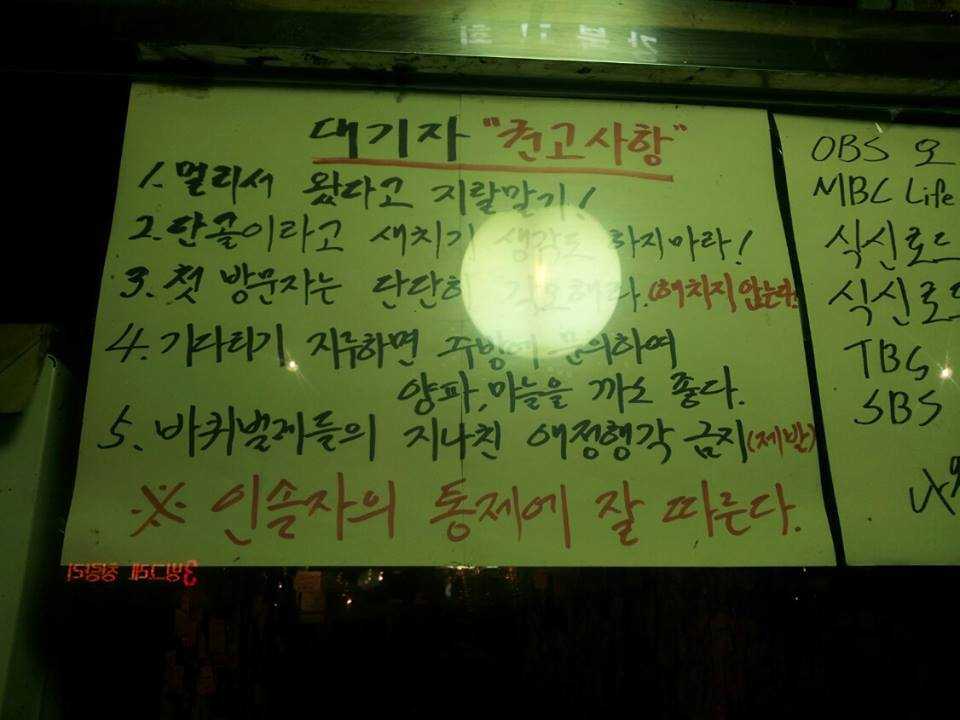 대기자 "권고사항"
1. 멀리서 왔다고 지랄말기!
2. 단골이라고 새치기 생각도 하지마라!
3. 첫 방문자는 단단히 각오해라. (해치지 않는다)
4. 기다리기 지루하면 주방에 문의하여
양파, 마늘을 까도 좋다.
5. 바퀴벌레들의 지나친 애정행각 금지 (제발)
※ 인솔자의 통제에 잘 따른다.
OBS 오
MBC Life
식신로드
식신로드
TBS
SBS